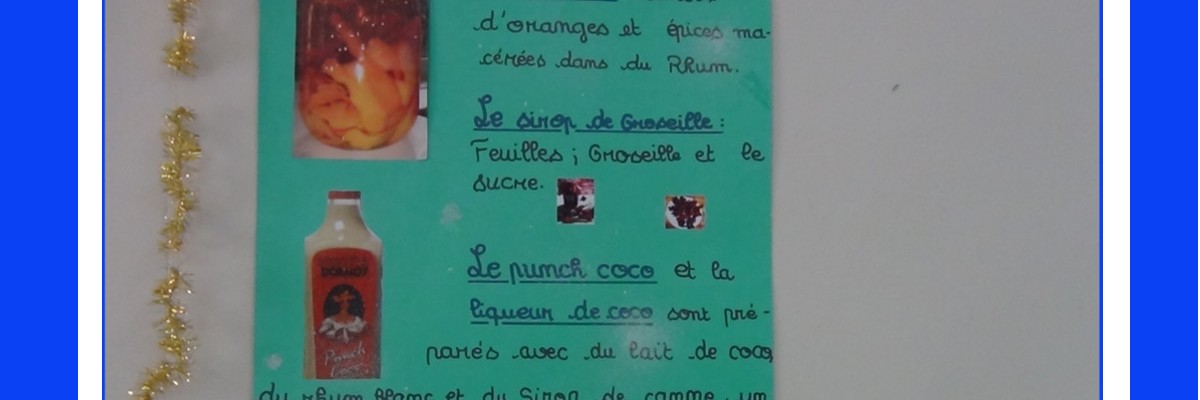 d'oranges et épices ma-
cérées dans du Rhum.
Le sirop de Groseille :
Feuilles ; Groseille et le
sucre.
DORMOY
Punch
Coco
Le punch coco et la
liqueur de coco sont pré-
parés avec du lait de coco,
du rhum Blanc et du Sirop de canne, un